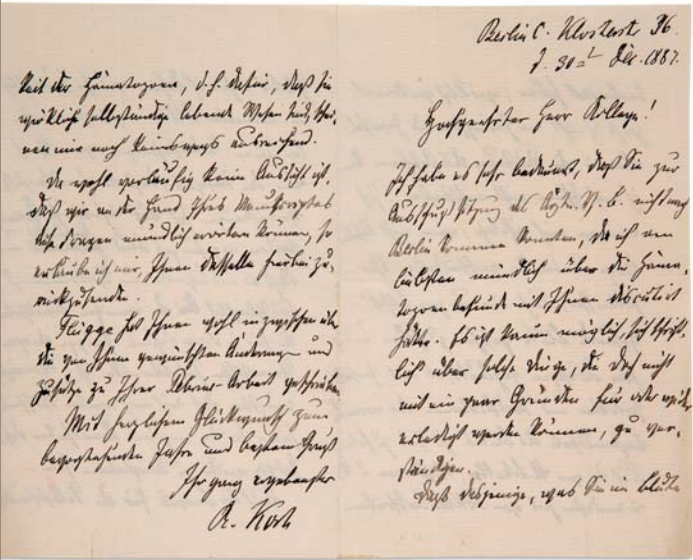 Berlin C. Klosterstr 36.
d. 30ten Dec. 1887.
Hochgeehrter Herr Kollege!
Ich habe es sehr bedauert, daß Sie zur
Ausschuß Sitzung des V. B. nicht nach
Berlin kommen konnten, da ich am
liebsten mündlich über die Häma-
tozoenbefunde mit Ihnen discutirt
hätte. Es ist kaum möglich, sich schrift-
lich über solche Dinge, die doch nicht
mit ein paar Gründen für oder wider
erledigt werden können, zu ver-
ständigen.
Daß dasjenige, was Sie im Blute
keit der Hämatozoen, d.h. dafür, daß sie
wirklich selbständige lebende Wesen sind, schei-
nen mir noch keineswegs ausreichend.
Da wohl vorläufig keine Aussicht ist,
daß wir an der Hand Ihres Manuscriptes
diese Fragen mündlich erörtern können, so
erlaube ich mir, Ihnen dasselbe hierbei zu-
rückzusenden.
Flügge hat Ihnen wohl inzwischen über
die von Ihnen gewünschten Änderungen und
Zusätze zu Ihrer Arbeit geschrieben.
Mit herzlichem Glückwunsch zum
bevorstehenden Jahre und bestem Gruß
Ihr ganz ergebenster
R. Koch